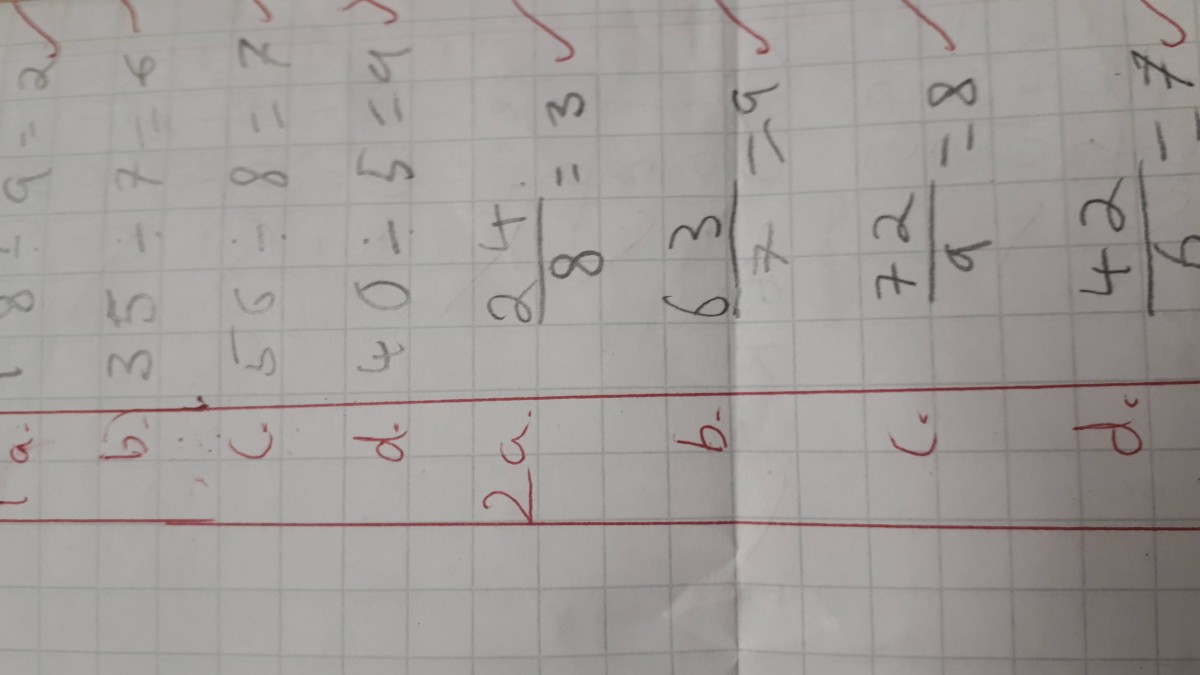 1 a. 18 ÷ 9 = 2 ✓
b. 35 ÷ 7 = 6
c. 56 ÷ 8 = 7 ✓
d. 40 ÷ 5 = 9 ✓
2a. 24/8 = 3 ✓
b. 63/7 = 9 ✓
c. 72/9 = 8 ✓
d. 42/6 = 7 ✓